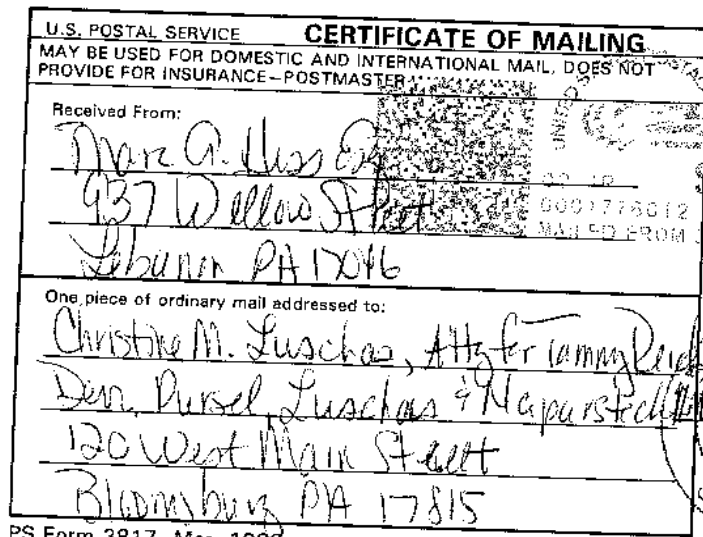 U.S. POSTAL SERVICE CERTIFICATE OF MAILING
MAY BE USED FOR DOMESTIC AND INTERNATIONAL MAIL, DOES NOT
PROVIDE FOR INSURANCE–POSTMASTER
Received From:
Marc A. Hess Esq
937 Willow Street
Lebanon PA 17046
0001776012
MAILED FROM
One piece of ordinary mail addressed to:
Christine M. Luschas, Atty for Tammy
Derr, Pursel, Luschas &
120 West Main Street
Bloomsburg PA 17815
PS Form 3817, Mar.